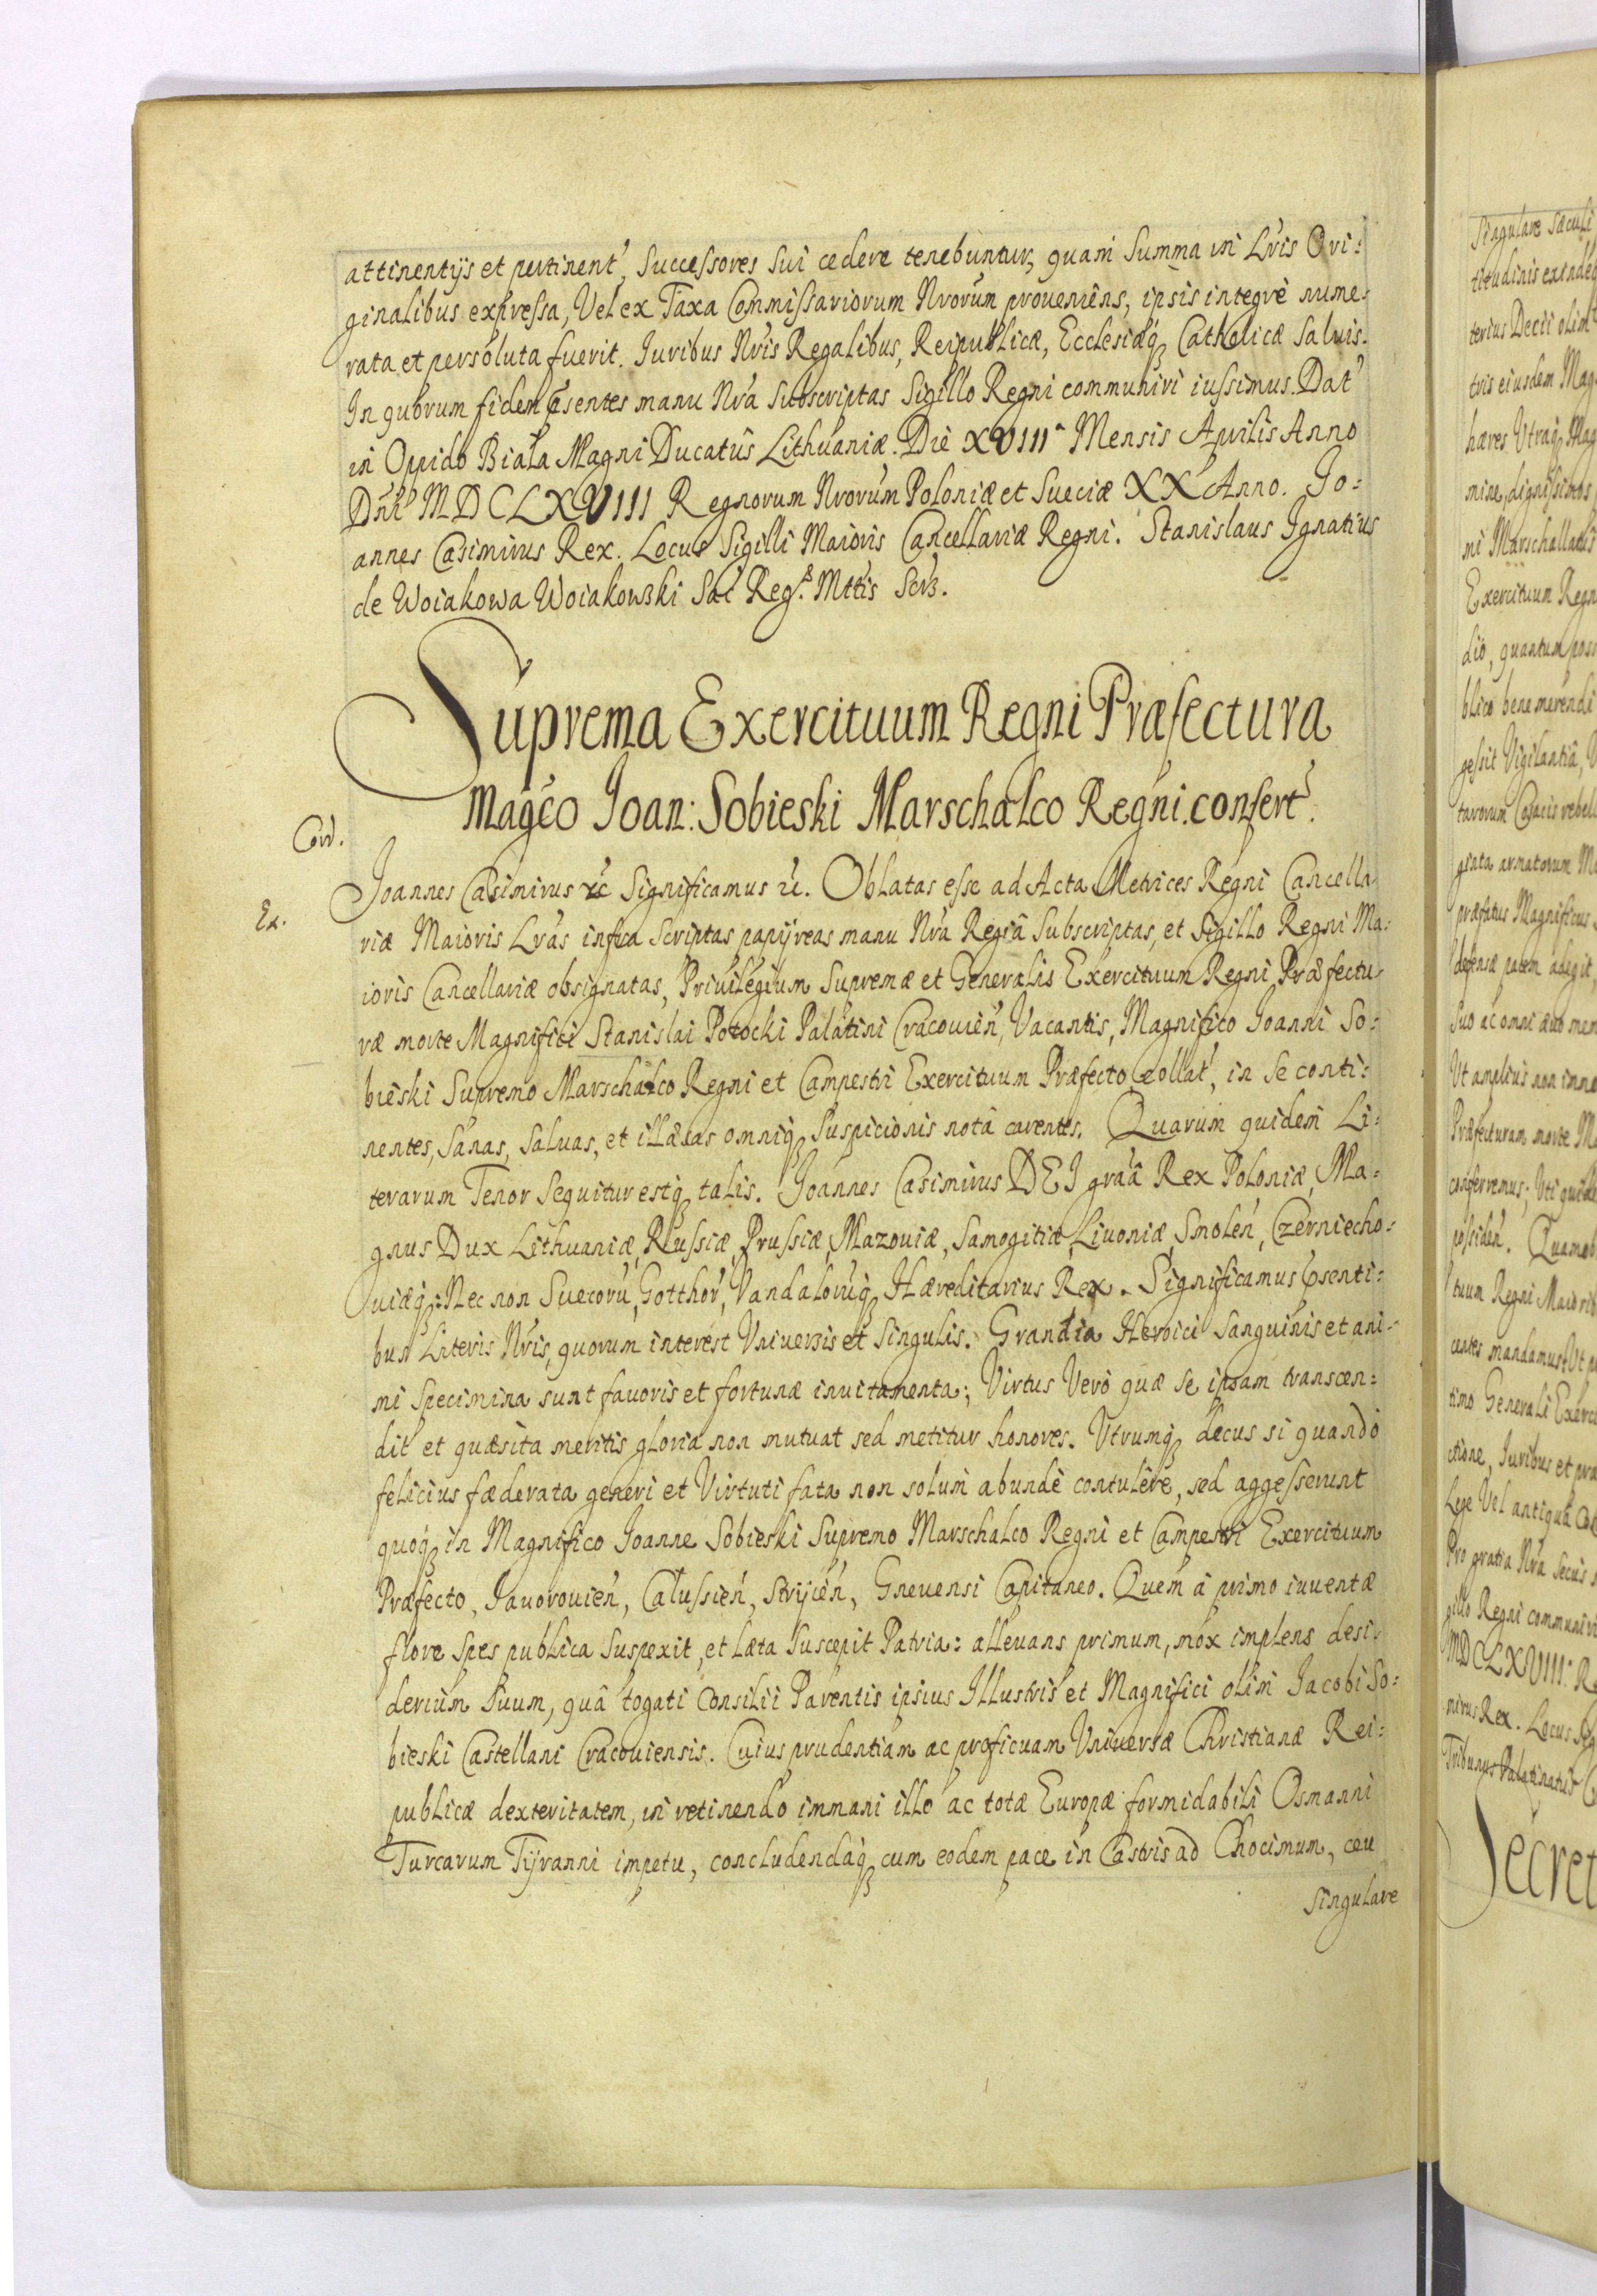 attinentijs et pertinent', Successores Sui cedere tenebuntur, quam Summa in Lris Ori:
ginalibus expressa, Vel ex Taxa Commissariorum Nrorum proueniens, ipsis integrè nume-
rata et persoluta fuerit. Iuribus Nris Regalibus, Reipublicæ, Ecclesiæq Catholicæ Saluis.
In quorum fidem psentes manu Nra Subscriptas Sigillo Regni communiri iussimus. Dat'
in Oppido Biała Magni Ducatûs Lithuaniæ. Die XVIII^a Mensis Aprilis Anno
Dni MDCLXVIII Regnorum Nrorum Poloniæ et Sueciæ XX Anno. Jo:
annes Casimirus Rex. Locus Sigilli Maioris Cancellariæ Regni. Stanislaus Ignatius
de Woiakowa Woiakowski Sac Reg. Mttis Scrs.
Suprema Exercituum Regni Præfectura
Magco Joan: Sobieski Marschalco Regni confert'.
Cord.
Joannes Casimirus &c Significamus &c. Oblatas esse ad Acta Metrices Regni Cancella-
Ex.
riæ Maioris Lras infra Scriptas papijreas manu Nra Regiâ Subscriptas, et Sigillo Regni Ma:
ioris Cancellariæ obsignatas, Priuilegium Supremæ et Generalis Exercituum Regni Præfectu-
ræ morte Magnifici Stanislai Potocki Palatini Cracouien', Vacantis, Magnifico Joanni So:
bieski Supremo Marschalco Regni et Campestri Exercituum Præfecto collat', in Se conti:
nentes, Sanas, Saluas, et illæsas omniq Suspicionis nota carentes. Quarum quidem Li:
terarum Tenor Sequitur estq talis. Joannes Casimirus DEI graâ Rex Poloniæ, Ma:
gnus Dux Lithuaniæ, Russiæ, Prussiæ, Mazouiæ, Samogitiæ, Liuoniæ, Smolen', Czerniecho:
uiæq: Nec non Suecorú, Gotthor', Vandalorúq Hæreditarius Rex. Significamus psenti:
bus Literis Nris, quorum interest Vniuersis et Singulis. Grandia Heroici Sanguinis et ani-
mi Specimina sunt fauoris et fortunæ inuitamenta; Virtus Verò quæ se ipsam transcen:
dit et quæsita meritis gloria non mutuat sed metitur honores. Vtrumq decus si quando
felicius fœderata generi et Virtuti fata non solum abundè contulêre, sed aggesserunt
quoq in Magnifico Joanne Sobieski Supremo Marschalco Regni et Campestri Exercituum
Præfecto, Jauorouien', Calussien', Stryien', Gneuensi Capitaneo. Quem à primo iuuentæ
flore Spes publica Suspexit, et læta Suscepit Patria: alleuans primum, mox implens desi:
derium Suum, quâ togati Consilii Parentis ipsius Illustris et Magnifici olim Jacobi So:
bieski Castellani Cracouiensis. Cuius prudentiam ac proficuam Vniuersæ Christianæ Rei:
publicæ dexteritatem, in retinendo immani illo ac totæ Europæ formidabili Osmanni
Turcarum Tijranni impetu, concludendaq cum eodem pace in Castris ad Chocimum, ceu
Singulare
Singulare Sæculi
terius Decii olim
tris eiusdem Mag
hæres Vtraq Mag
mine, dignissimos
ni Marschallatus
Exercituum Regn
dio, quantum poss
blico bene merendi
gessit Vigilantiâ, V
tarorum Cosacis rebell
ginta armatorum Mi
præfatus Magnificus
defensæ pacem adegit
Suo ac omni æuo mem
Vt amplius non inno
Præfecturam morte Ma
conferremus; Vti quide
possiden'. Quamob
tuum Regni Maioris
centes mandamus: Vt p
timo Generali Exerci
ctione, Iuribus et præ
Lege Vel antiquâ Con
Pro gratia Nra Secus
gillo Regni communiri
MDCLXVIII. Re
mirus Rex. Locus Sig
Tribunus Palatinatus C
Secret